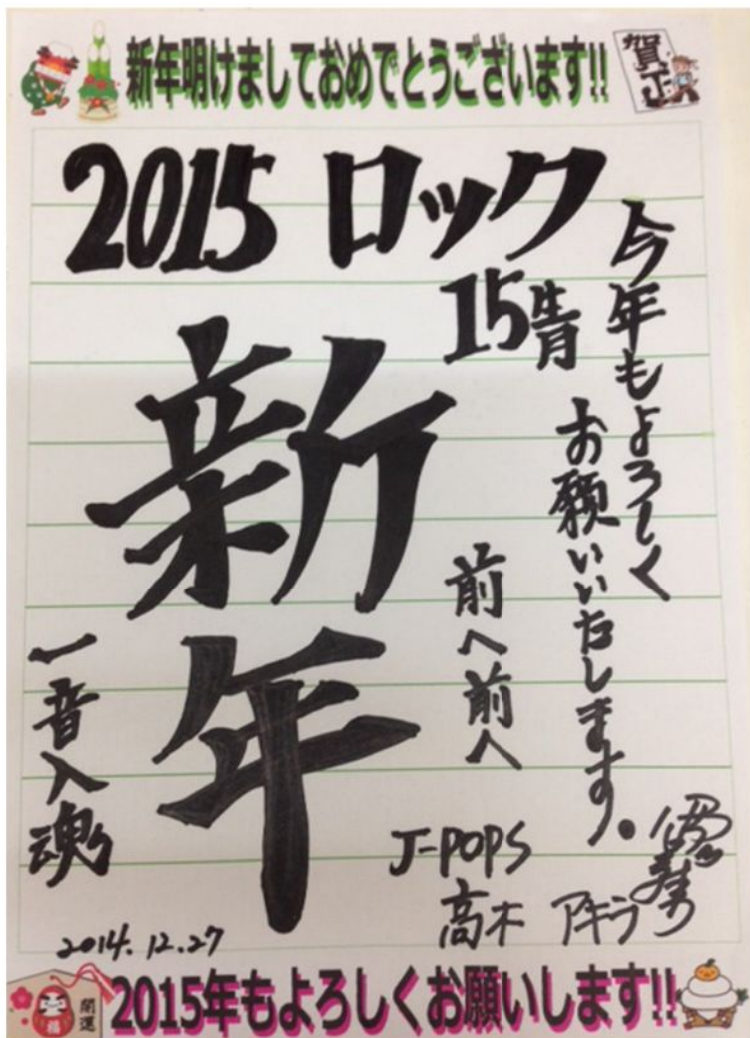 新年明けましておめでとうございます!!
賀正
2015 ロック
15
今年もよろしく
お願いいたします。
新年
前へ前へ
一音入魂
J-POPS
高木 アキラ
2014.12.27
開運
福
2015年もよろしくお願いします!!